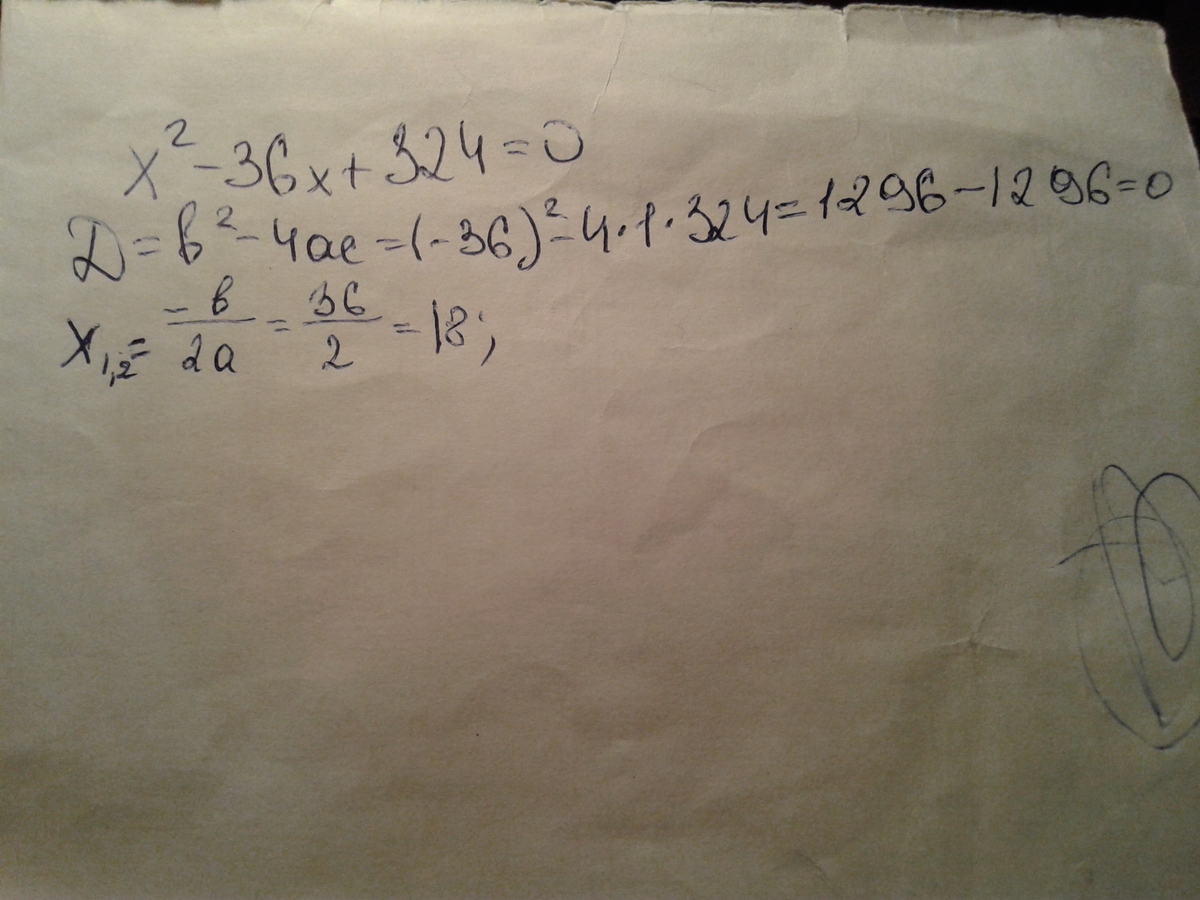 x² - 36x + 324 = 0
D = b² - 4ac = (-36)² - 4·1·324 = 1296 - 1296 = 0
x₁,₂ = -b/2a = 36/2 = 18;